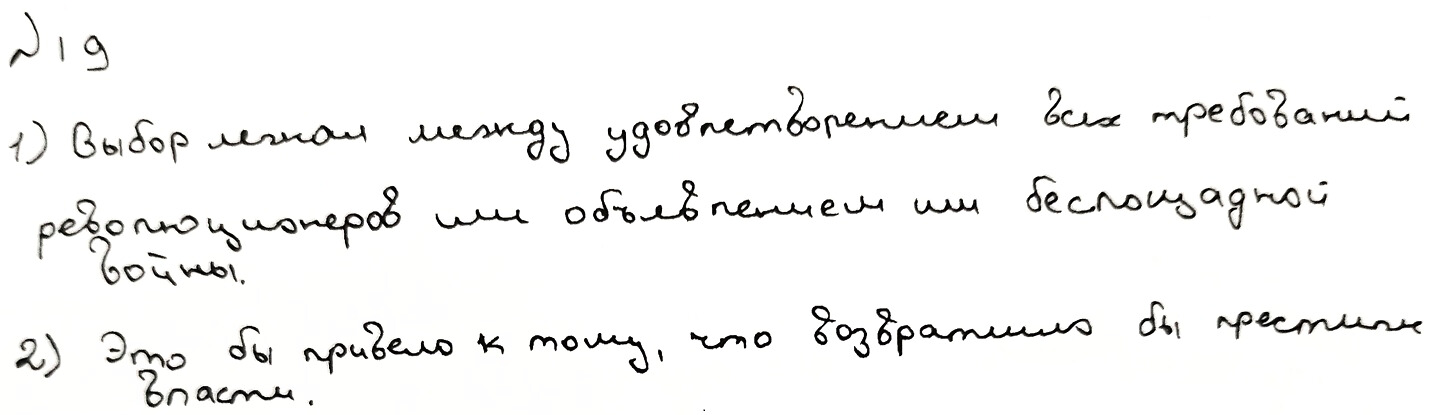 №19
1) Выбор лежал между удовлетворением всех требований
революционеров или объявлением им беспощадной
войны.
2) Это бы привело к тому, что возвратило бы престиж
власти.